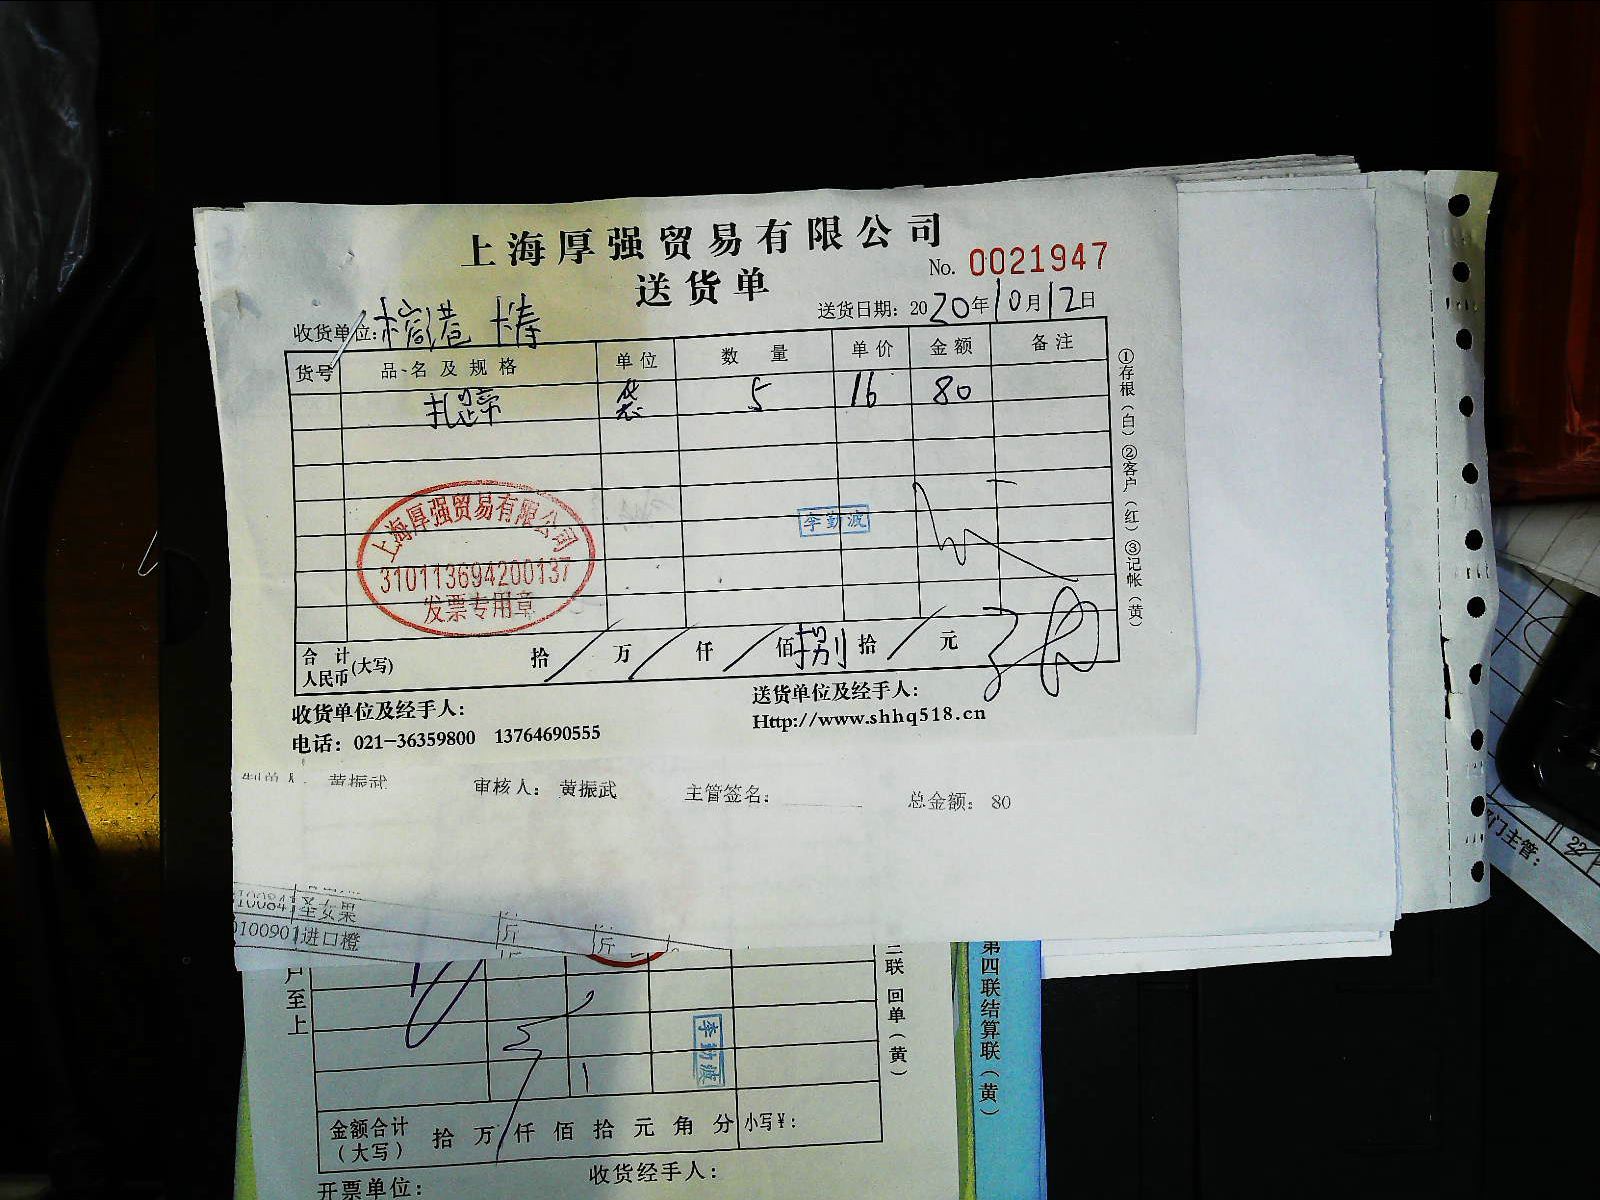 上海厚强贸易有限公司
送货单
No. 0021947
收货单位:
送货日期: 2020年10月12日
货号 品名及规格 单位 数量 单价 金额 备注
袋 5 16 80
①存根(白) ②客户(红) ③记帐(黄)
上海厚强贸易有限公司
310113694200137
发票专用章
李勤波
合计人民币(大写) 拾 万 仟 佰 捌 拾 元
收货单位及经手人:
送货单位及经手人:
电话: 021-36359800 13764690555
Http://www.shhq518.cn
制单人 黄振武 审核人: 黄振武 主管签名: 总金额: 80
100841 圣女果
0100901 进口橙 斤 斤
户至上
三联 回单(黄)
第四联结算联(黄)
李勤波
金额合计(大写) 拾 万 仟 佰 拾 元 角 分 小写¥:
开票单位: 收货经手人:
门主管: